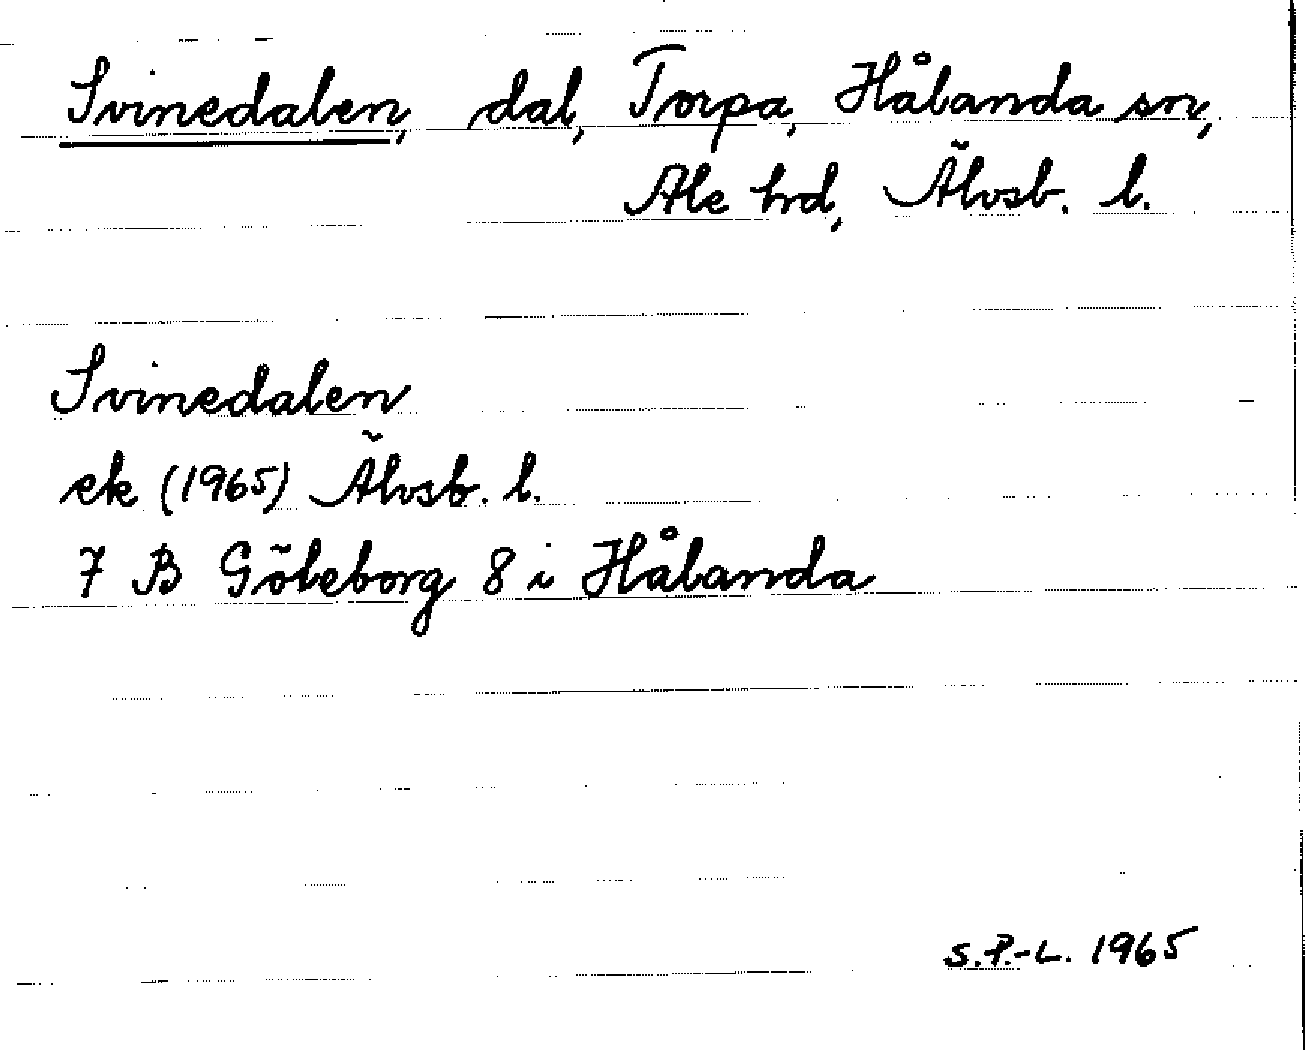 Svinedalen, dal, Torpa, Hålanda sn,
Ale hrd, Älvsb. l.
Svinedalen
ek (1965) Älvsb. l.
7 B Göteborg 8 i Hålanda
S.P.-L. 1965